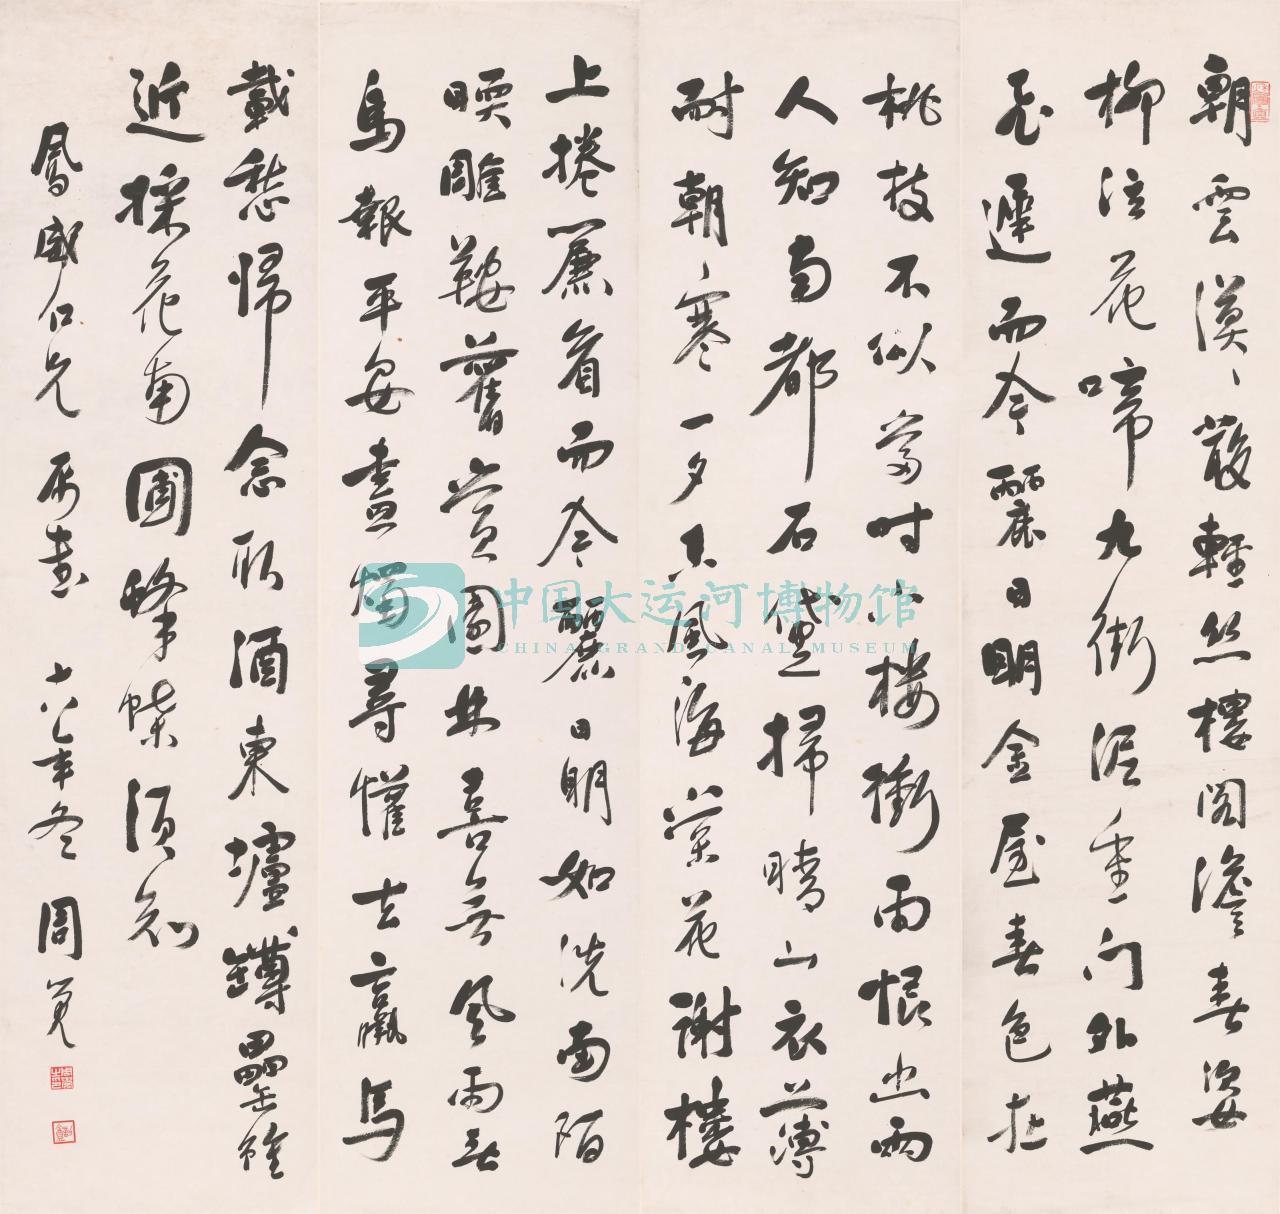 朝雲漠漠散輕絲樓閣澹春姿
柳泣花啼九街泥重門外燕
飛遲而今麗日明金屋春色在
桃枝不似當時小樓衝雨恨幽兩
人知南都石黛掃晴山衣薄
耐朝寒一夕東風海棠花謝樓
上捲簾看而今麗日明如洗南陌
暖雕鞍舊賞園林喜無風雨春
鳥報平安畫燭尋懽去羸馬
戴愁歸念取酒東壚罇罍雖
近採花南圃蜂蝶須知
鳳威仁兄屬書 年冬 周
中国大运河博物馆
CHINA GRAND CANAL MUSEUM